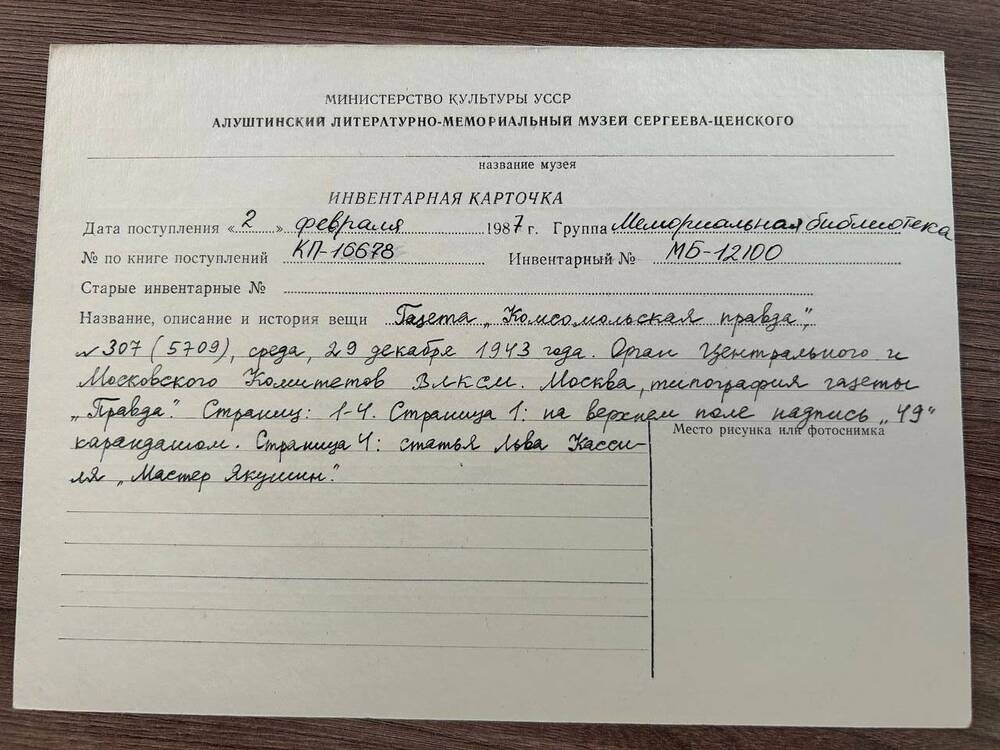 МИНИСТЕРСТВО КУЛЬТУРЫ УССР
АЛУШТИНСКИЙ ЛИТЕРАТУРНО-МЕМОРИАЛЬНЫЙ МУЗЕЙ СЕРГЕЕВА-ЦЕНСКОГО
название музея
ИНВЕНТАРНАЯ КАРТОЧКА
Дата поступления «2» февраля 1987 г. Группа Мемориальная библиотека
№ по книге поступлений КП-16678 Инвентарный № МБ-12100
Старые инвентарные №
Название, описание и история вещи Газета „Комсомольская правда",
№ 307 (5709), среда, 29 декабря 1943 года. Орган Центрального и
Московского Комитетов ВЛКСМ. Москва, типография газеты
„Правда". Страниц: 1-4. Страница 1: на верхнем поле надпись „49"
карандашом. Страница 4: статья Льва Касси-
ля „Мастер Якушин".
Место рисунка или фотоснимка